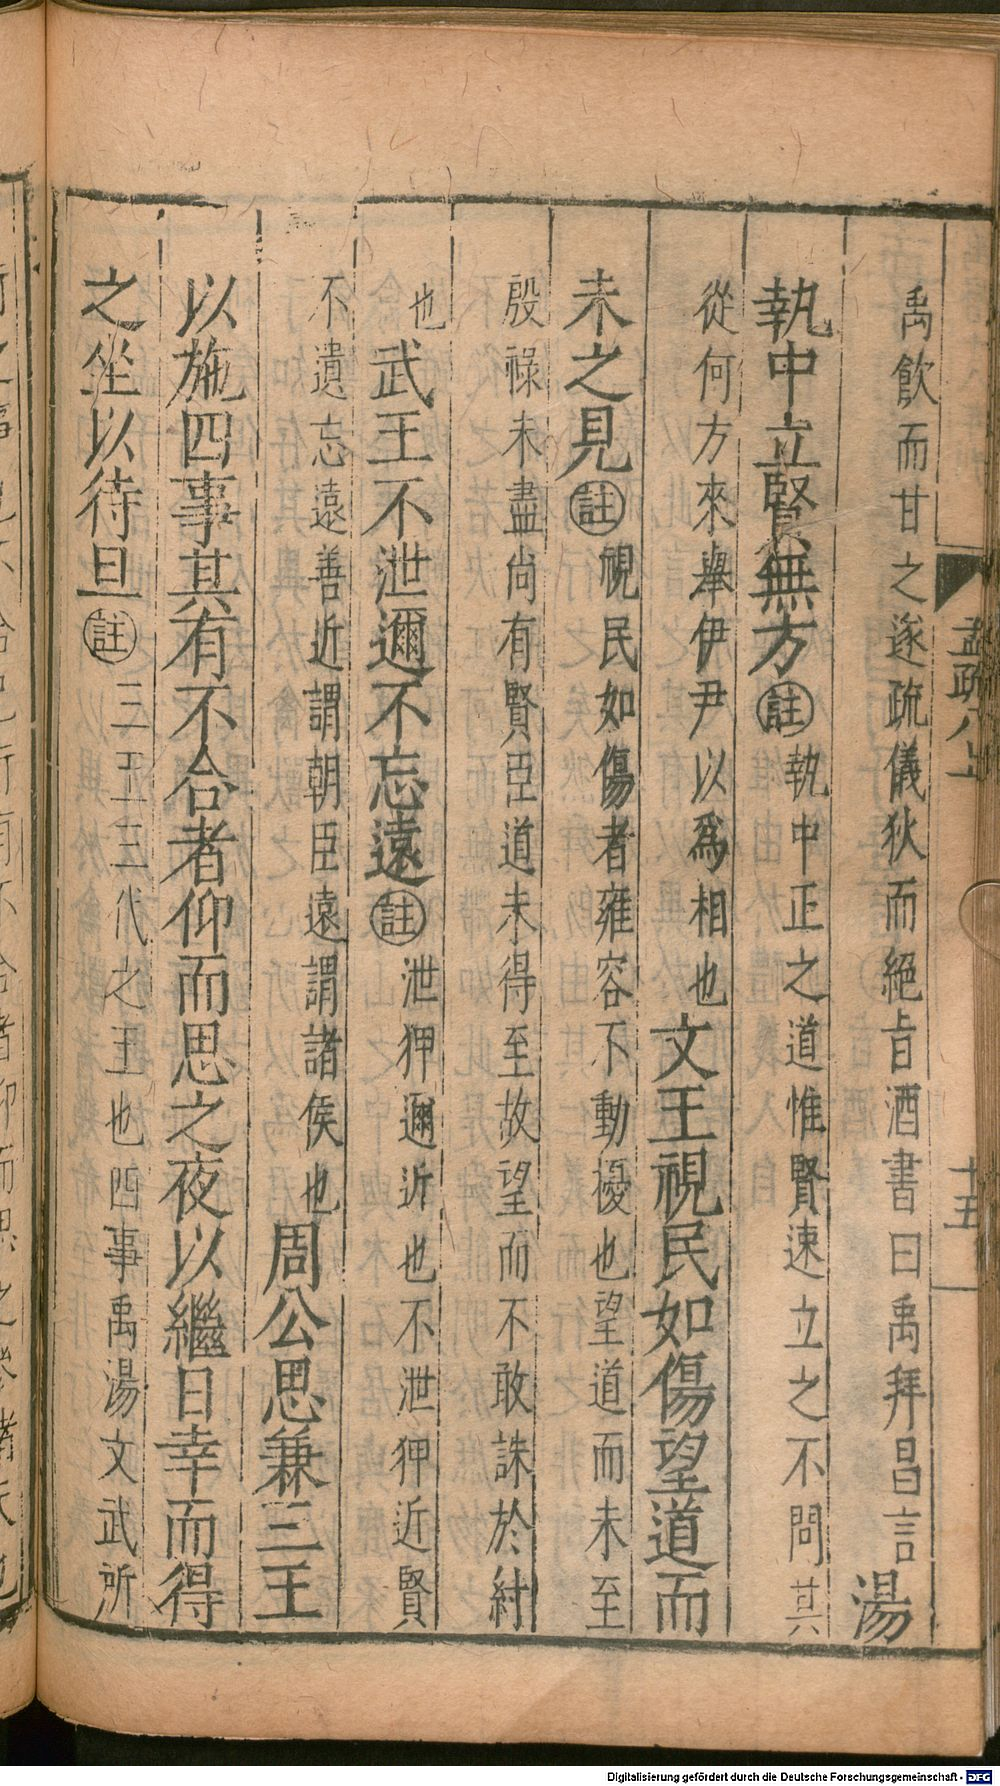 禹飲而甘之遂疏儀狄而絕旨酒書曰禹拜昌言湯
執中立賢無方註執中正之道惟賢速立之不問其
從何方來舉伊尹以為相也文王視民如傷望道而
未之見註視民如傷者雍容不動擾也望道而未至
殷祿未盡尚有賢臣道未得至故望而不敢誅於紂
也武王不泄邇不忘遠註泄狎邇近也不泄狎近賢
不遺忘遠善近謂朝臣遠謂諸侯也周公思兼三王
以施四事其有不合者仰而思之夜以繼日幸而得
之坐以待旦註三王三代之王也四事禹湯文武所
孟疏八上
十五
Digitalisierung gefördert durch die Deutsche Forschungsgemeinschaft - DFG